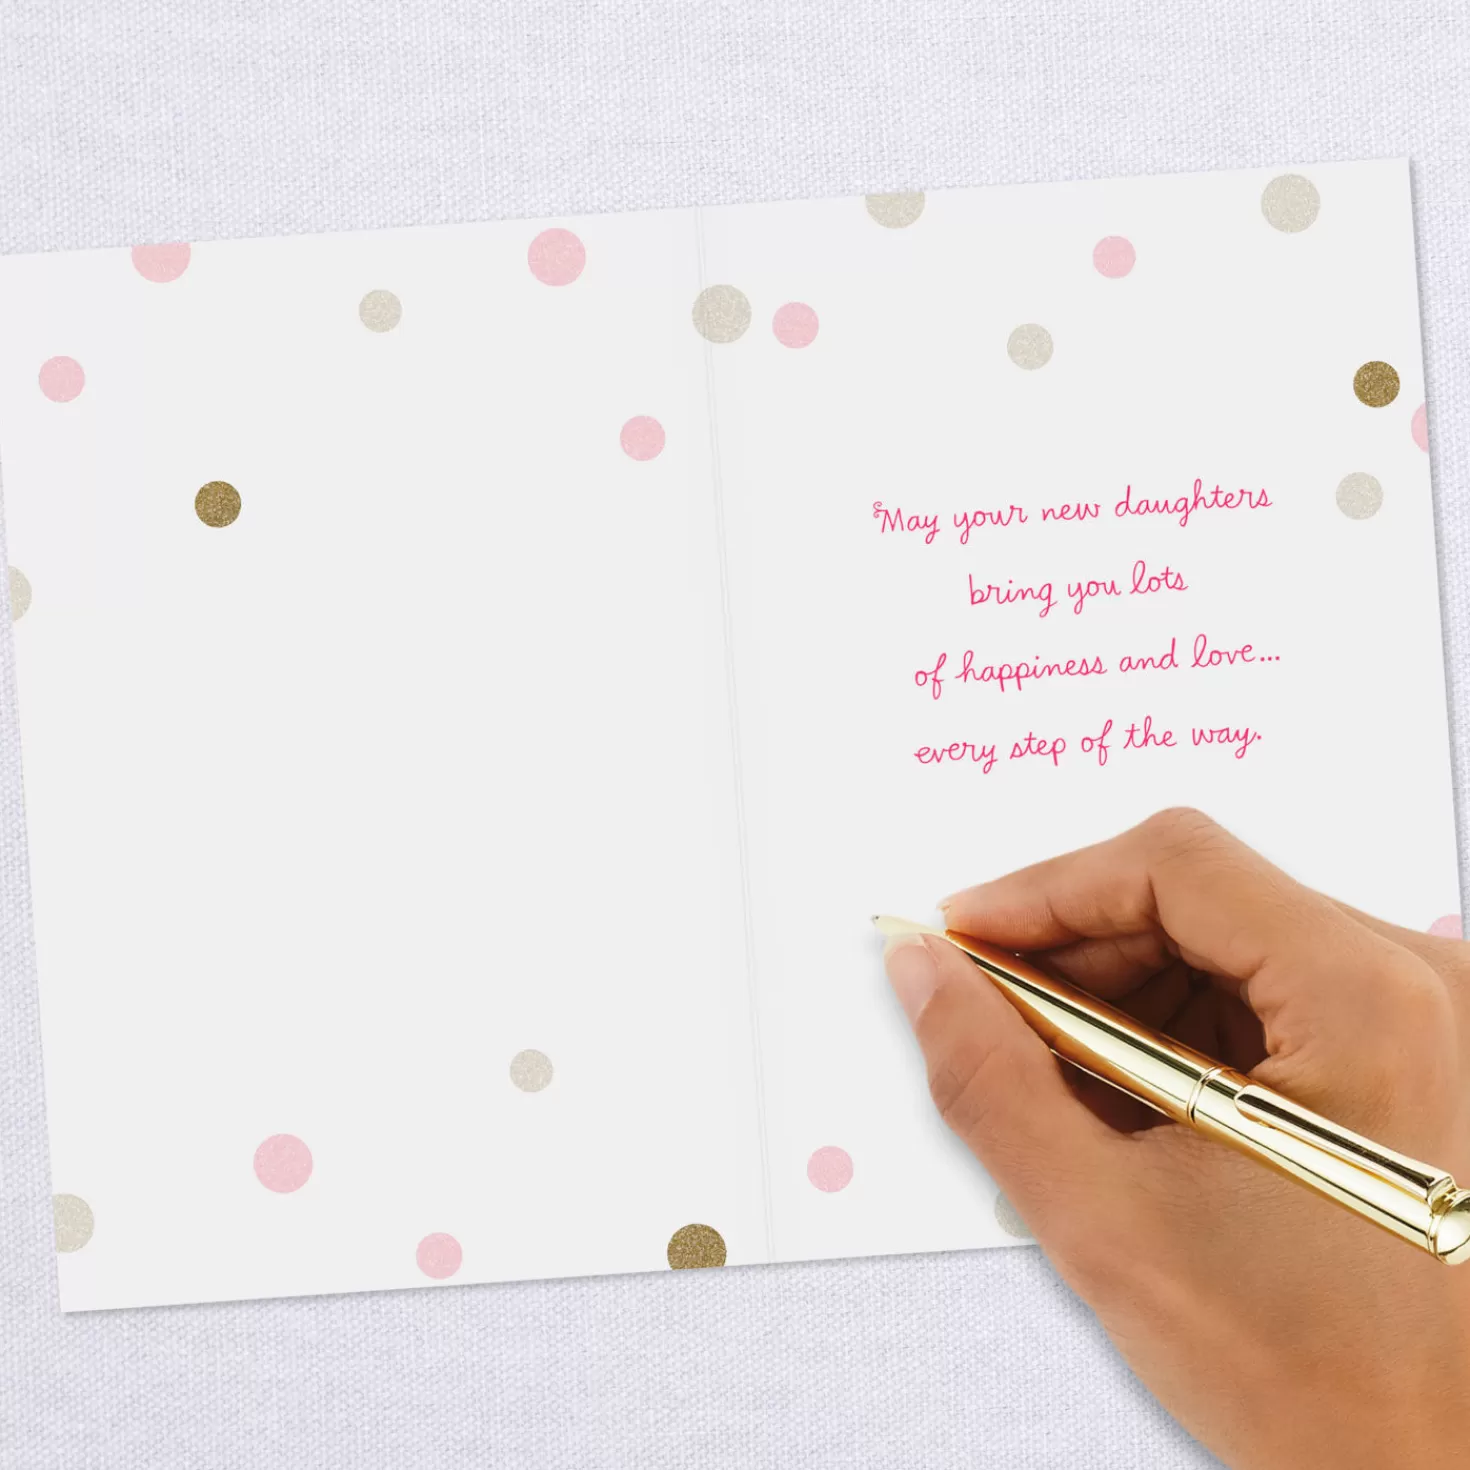 May your new daughters
bring you lots
of happiness and love...
every step of the way.